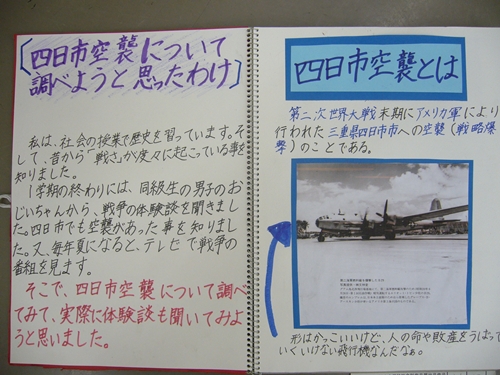 四日市空襲について
調べようと思ったわけ
私は、社会の授業で歴史を習っています。そ
して、昔から「戦さ」が度々に起こっている事を
知りました。
1学期の終わりには、同級生の男子のお
じいちゃんから、戦争の体験談を聞きまし
た。四日市でも空襲があった事を知りまし
た。又、毎年夏になると、テレビで戦争の
番組を見ます。
そこで、四日市空襲について調べ
てみて、実際に体験談も聞いてみよ
うと思いました。
四日市空襲とは
第二次世界大戦末期にアメリカ軍により
行われた三重県四日市市への空襲(戦略爆
撃)のことである。
形はかっこいいけど、人の命や財産をうばって
いくいけない飛行機なんだなぁ。